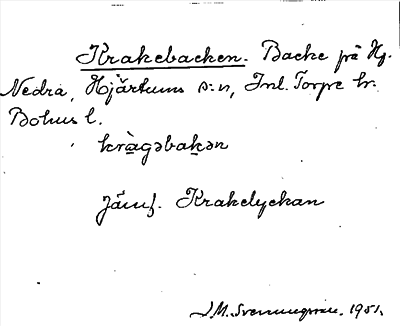 Krakebacken. Backe på Hg.
Nedra, Hjärtums s:n, Inl. Torpe hr.
Bohus l.
kràgəbakən
Jämf. Krakelyckan
J.M. 1951.